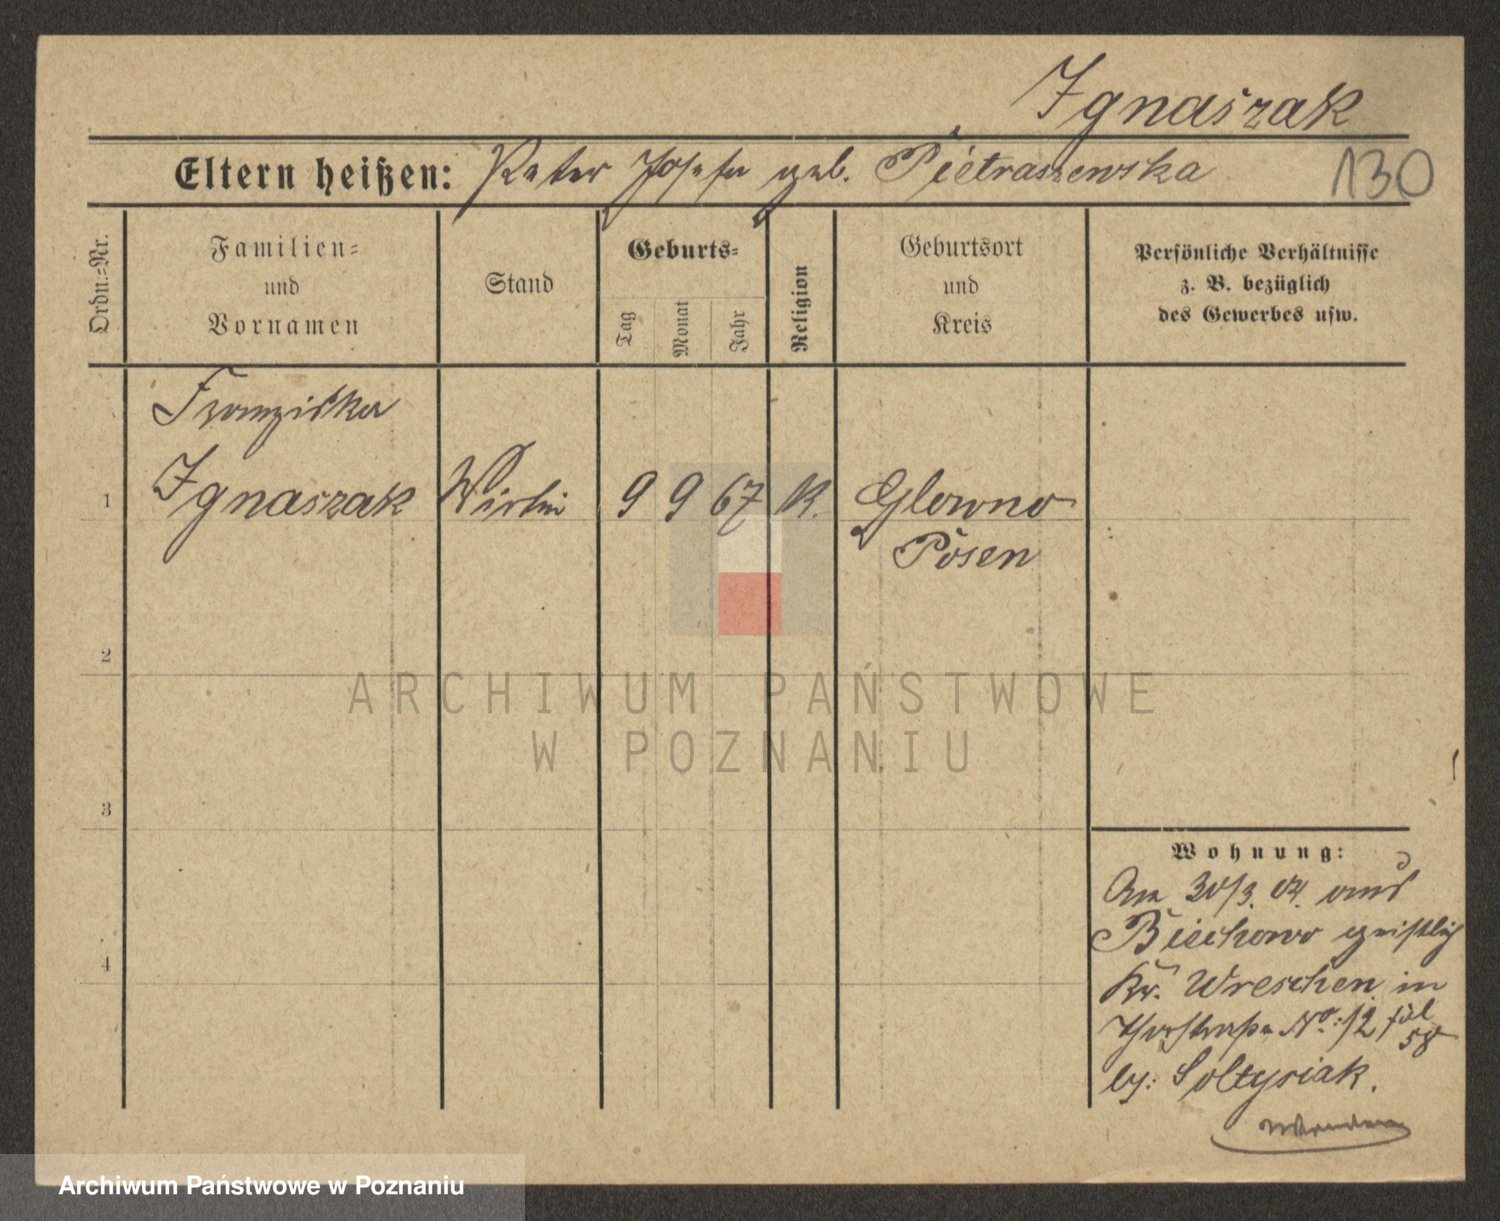 Ignaszak
Eltern heißen: Peter Josefa geb. Pietraszewska
130
Ordn.-Nr.
Familien-
und
Vornamen
Stand
Geburts-
Tag
Monat
Jahr
Religion
Geburtsort
und
Kreis
Persönliche Verhältnisse
z. B. bezüglich
des Gewerbes usw.
Franziska
1 Ignaszak Wirtin 9 9 67 K. Glowno
Posen
2
3
4
ARCHIWUM PAŃSTWOWE
W POZNANIU
Wohnung:
Am 30/3. 04. aus
Biechowo geistlich
Kr. Wreschen in
No: 12 fol
58
by: Soltysiak.
Archiwum Państwowe w Poznaniu